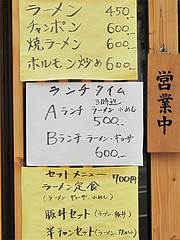 ラーメン 450
チャンポン 600
焼ラーメン 600
ホルモン炒め 600
ランチタイム
3時迄
Aランチ ラーメン・小めし
500
Bランチ ラーメン・ギョーザ
600
セットメニュー
ラーメン定食 700円
(ラーメン ギョーザ 小めし)
豚丼セット(ラーメン 豚丼)
半チャンセット
営業中